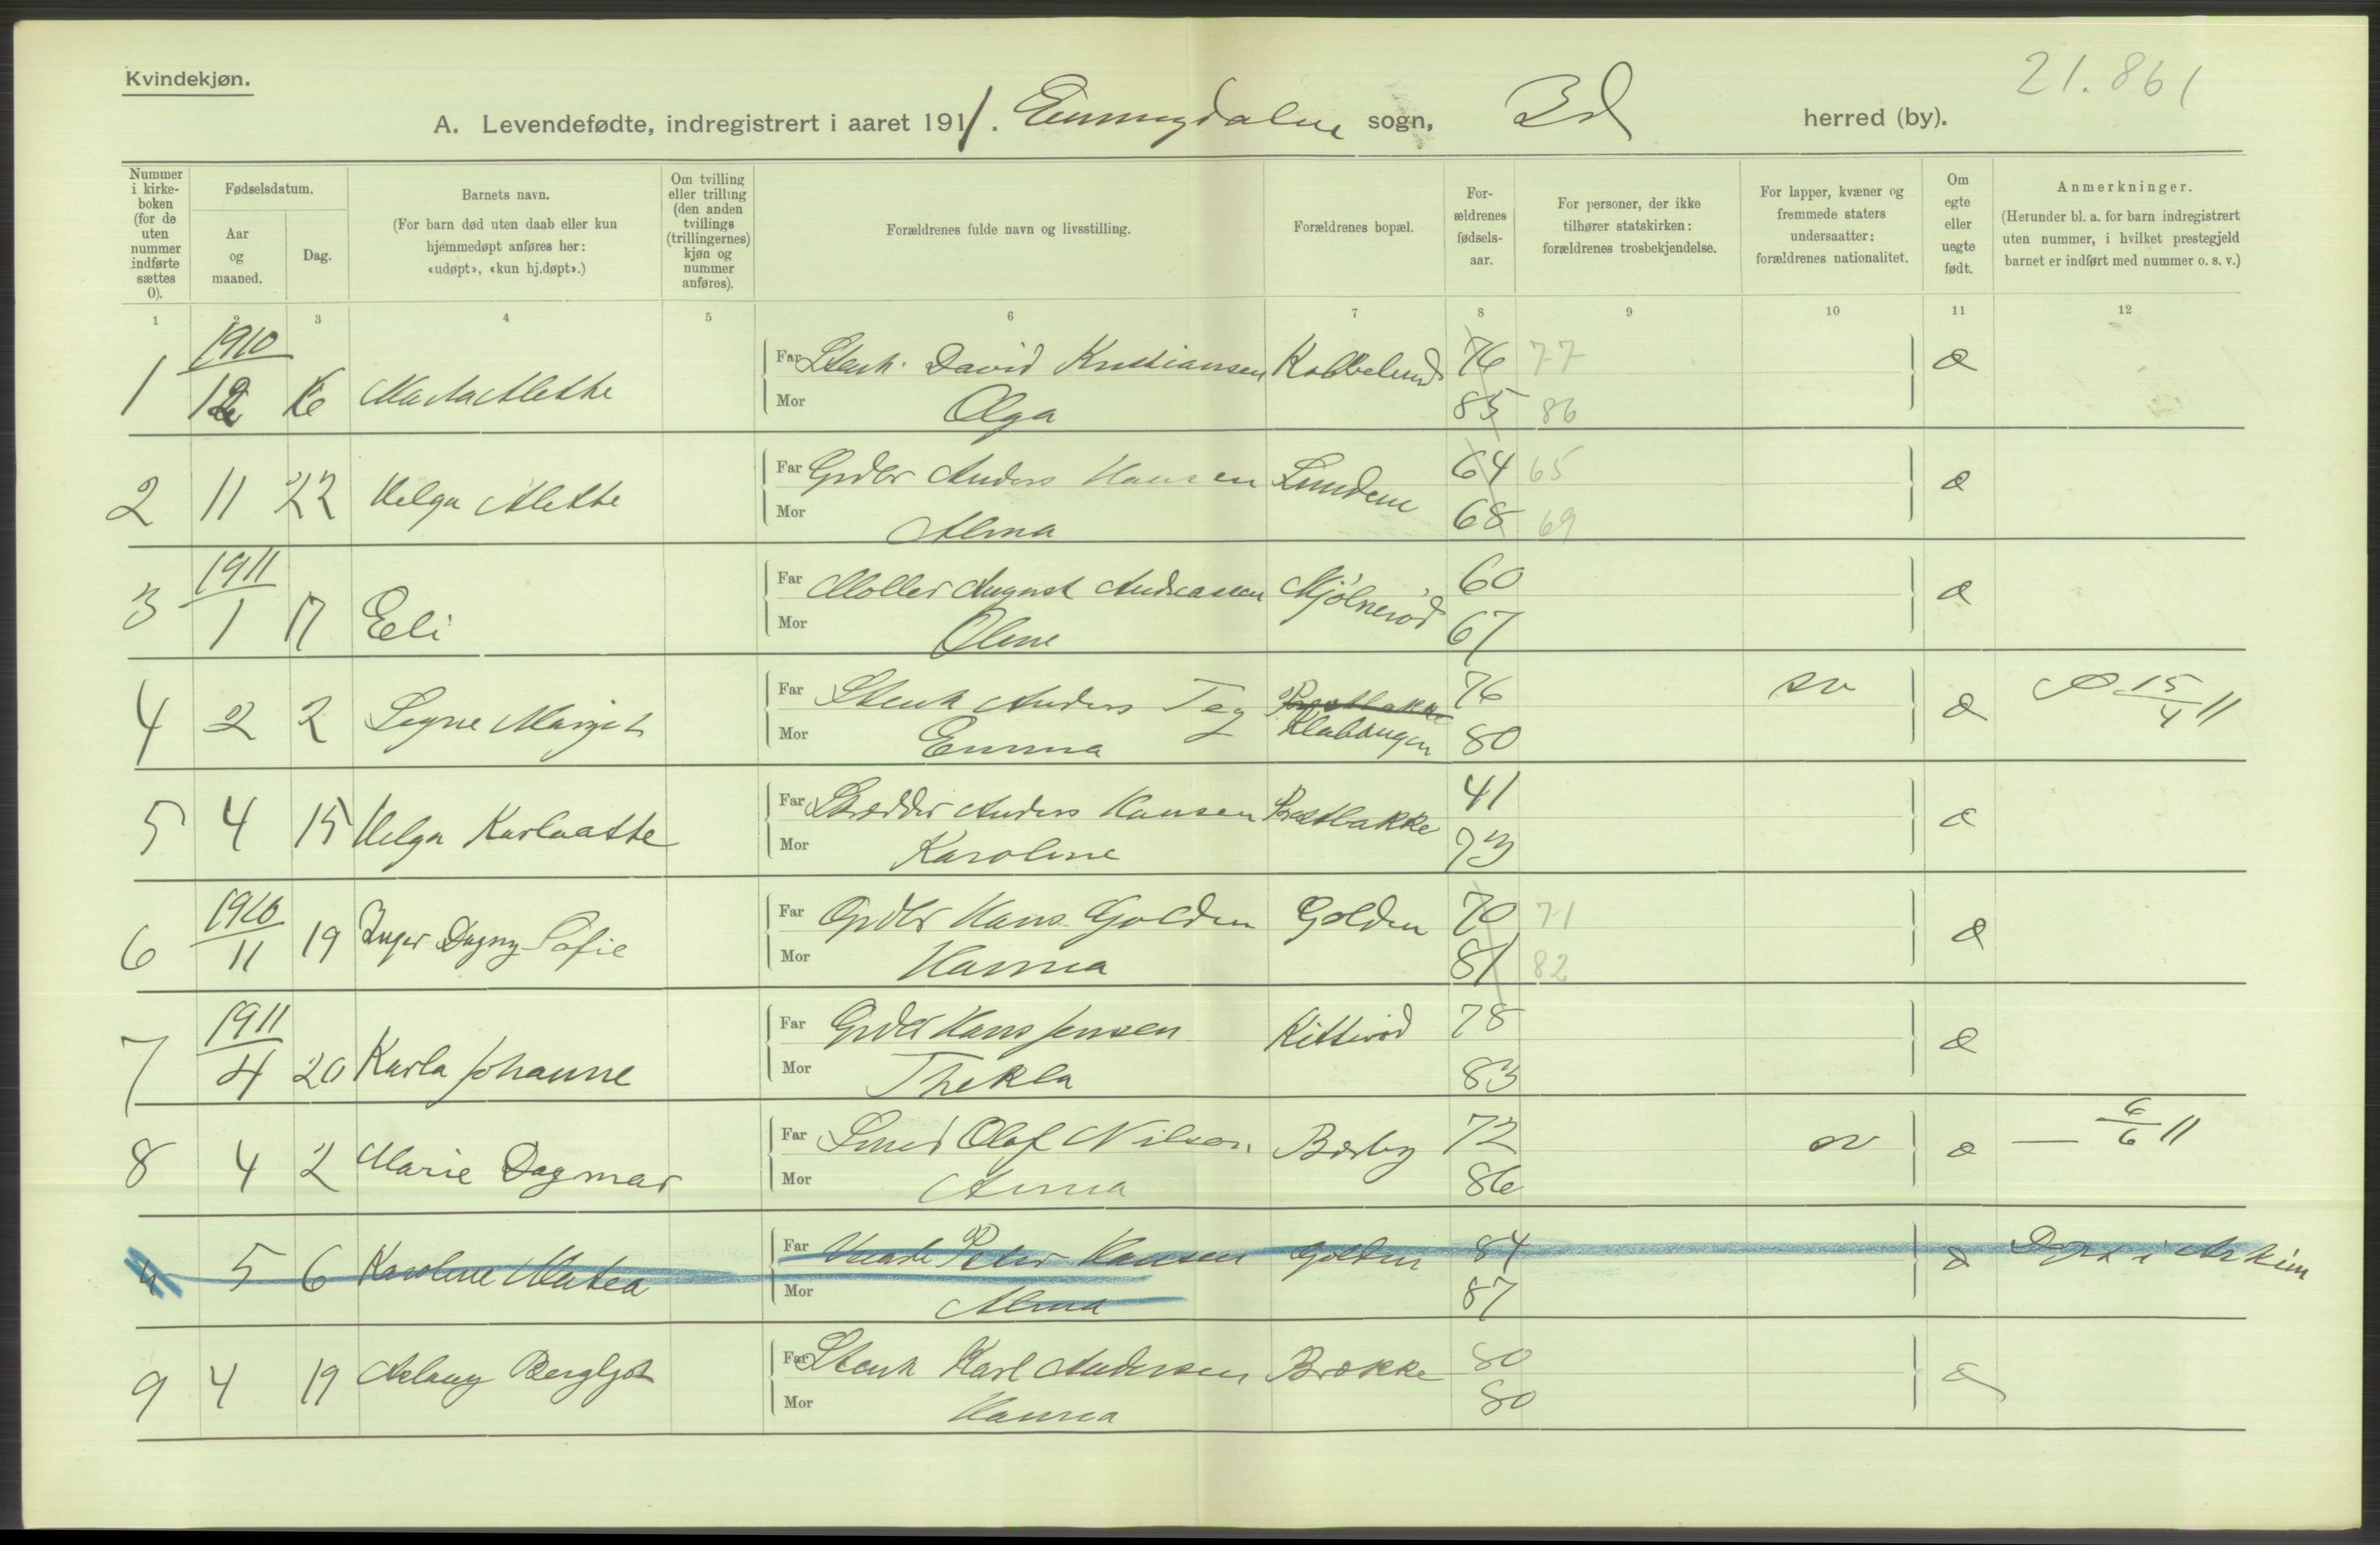 Kvindekjøn.
21.861
A. Levendefødte, indregistrert i aaret 1911. Enningdalen sogn, Id herred (by).
Nummer i kirkeboken (for de uten nummer indførte sættes 0).
Fødselsdatum.
Aar og maaned.
Dag.
Barnets navn.
(For barn død uten daab eller kun hjemmedøpt anføres her: «udøpt», «kun hj.døpt».)
Om tvilling eller trilling (den anden tvillings (trillingernes) kjøn og nummer anføres).
Forældrenes fulde navn og livsstilling.
Forældrenes bopæl.
Forældrenes fødselsaar.
For personer, der ikke tilhører statskirken: forældrenes trosbekjendelse.
For lapper, kvæner og fremmede staters undersaatter: forældrenes nationalitet.
Om egte eller uegte født.
Anmerkninger.
(Herunder bl. a. for barn indregistrert uten nummer, i hvilket prestegjeld barnet er indført med nummer o. s. v.)
1 2 3 4 5 6 7 8 9 10 11 12
1910
1 12 16 Marta Alethe Far Stenh. David Kristiansen 76 77 æ
Mor Olga 85 86
2 11 22 Helga Alethe Far Grdbr Anders Hansen Lundene 64 65 æ
Mor Alma 68 69
1911
3 1 17 Eli Far Møller August Andreassen Mjølnerød 60 æ
Mor Oline 67
4 2 2 Signe Margit Far Stenh Anders Teg Prestbakke 76 sv æ 15/4 11
Mor Emma 80
5 4 15 Helga Far Skrædder Anders Hansen Prestbakke 41 æ
Mor Karoline 73
1910
6 11 19 Inger Dagny Sofie Far Grdbr Hans Golden Golden 70 71 æ
Mor Hanna 81 82
1911
7 4 20 Karla Johanne Far Grdbr Hans Jensen Kitterød 78 æ
Mor Thekla 83
8 4 2 Marie Dagmar Far Smed Olaf Nilson Berby 72 sv æ — 6/6 11
Mor Anna 86
5 6 Karoline Mathea Far Peter Hansen Golden 84 æ Døpt i Askim
Mor Alma 87
9 4 19 Aslaug Bergljot Far Stenh Karl Andersen Brække 80 æ
Mor Hanna 80